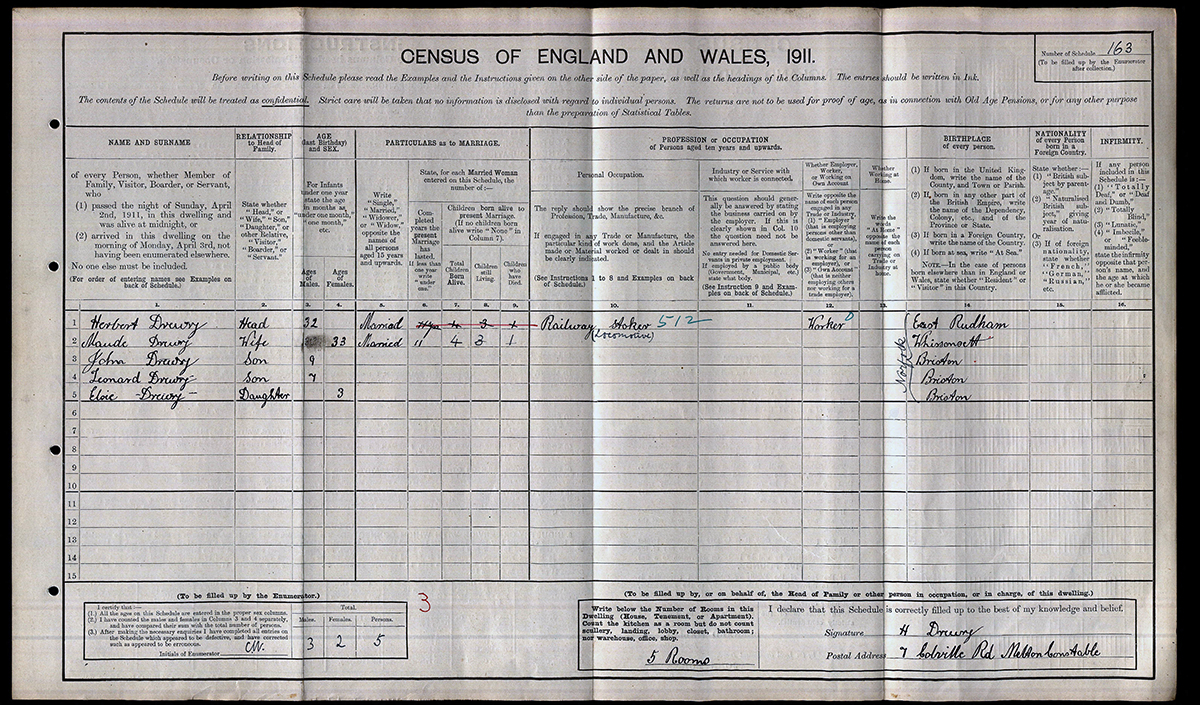 CENSUS OF ENGLAND AND WALES, 1911.
Number of Schedule 163
(To be filled up by the Enumerator
after collection.)
Before writing on this Schedule please read the Examples and the Instructions given on the other side of the paper, as well as the headings of the Columns. The entries should be written in Ink.
The contents of the Schedule will be treated as confidential. Strict care will be taken that no information is disclosed with regard to individual persons. The returns are not to be used for proof of age, as in connection with Old Age Pensions, or for any other purpose
than the preparation of Statistical Tables.
NAME AND SURNAME
of every Person, whether Member of
Family, Visitor, Boarder, or Servant,
who
(1) passed the night of Sunday, April
2nd, 1911, in this dwelling and
was alive at midnight, or
(2) arrived in this dwelling on the
morning of Monday, April 3rd, not
having been enumerated elsewhere.
No one else must be included.
(For order of entering names see Examples on
back of Schedule.)
RELATIONSHIP
to Head of
Family.
State whether
"Head," or
"Wife," "Son,"
"Daughter," or
other Relative,
"Visitor,"
"Boarder," or
"Servant."
AGE
(last Birthday)
and SEX.
For Infants
under one year
state the age
in months as
"under one month,"
"one month,"
etc.
Ages
of
Males.
Ages
of
Females.
PARTICULARS as to MARRIAGE.
Write
"Single,"
"Married,"
"Widower,"
or "Widow,"
opposite the
names of
all persons
aged 15 years
and upwards.
State, for each Married Woman
entered on this Schedule, the
number of:—
Com-
pleted
years the
present
Marriage
has
lasted.
If less than
one year
write
"under
one."
Children born alive to
present Marriage.
(If no children born
alive write "None" in
Column 7).
Total
Children
Born
Alive.
Children
still
Living.
Children
who
have
Died.
PROFESSION or OCCUPATION
of Persons aged ten years and upwards.
Personal Occupation.
The reply should show the precise branch of
Profession, Trade, Manufacture, &c.
If engaged in any Trade or Manufacture, the
particular kind of work done, and the Article
made or Material worked or dealt in should
be clearly indicated.
(See Instructions 1 to 8 and Examples on back
of Schedule.)
Industry or Service with
which worker is connected.
This question should gener-
ally be answered by stating
the business carried on by
the employer. If this is
clearly shown in Col. 10
the question need not be
answered here.
No entry needed for Domestic Ser-
vants in private employment.
If employed by a public body
(Government, Municipal, etc.)
state what body.
(See Instruction 9 and Exam-
ples on back of Schedule.)
Whether Employer,
Worker,
or Working on
Own Account
Write opposite the
name of each person
engaged in any
Trade or Industry,
(1) "Employer"
(that is employing
persons other than
domestic servants),
or
(2) "Worker" (that
is working for an
employer), or
(3) "Own Account"
(that is neither
employing others
nor working for a
trade employer).
Whether
Working at
Home.
Write the
words
"At Home"
opposite the
name of each
person
carrying on
Trade or
Industry at
home.
BIRTHPLACE
of every person.
(1) If born in the United King-
dom, write the name of the
County, and Town or Parish.
(2) If born in any other part of
the British Empire, write
the name of the Dependency,
Colony, etc., and of the
Province or State.
(3) If born in a Foreign Country,
write the name of the Country.
(4) If born at sea, write "At Sea."
NOTE.—In the case of persons
born elsewhere than in England or
Wales, state whether "Resident" or
"Visitor" in this Country.
NATIONALITY
of every Person
born in a
Foreign Country.
State whether:—
(1) "British sub-
ject by parent-
age."
(2) "Naturalised
British sub-
ject," giving
year of natu-
ralisation.
Or
(3) If of foreign
nationality,
state whether
"French,"
"German,"
"Russian,"
etc.
INFIRMITY.
If any person
included in this
Schedule is:—
(1) "Totally
Deaf," or "Deaf
and Dumb,"
(2) "Totally
Blind,"
(3) "Lunatic,"
(4) "Imbecile,"
or "Feeble-
minded,"
state the infirmity
opposite that per-
son's name, and
the age at which
he or she became
afflicted.
1. 2. 3. 4. 5. 6. 7. 8. 9. 10. 11. 12. 13. 14. 15. 16.
1 Herbert Drewry Head 32 Married 4 3 1 Railway Stoker 512 Worker East Rudham
(Locomotive)
2 Maude Drewry Wife 33 Married 11 4 3 1 Whissonsett
3 John Drewry Son 9 Briston
4 Leonard Drewry Son 7 Briston
5 Elsie Drewry Daughter 3 Briston
Norfolk
6
7
8
9
10
11
12
13
14
15
(To be filled up by the Enumerator.)
I certify that:—
(1.) All the ages on this Schedule are entered in the proper sex columns.
(2.) I have counted the males and females in Columns 3 and 4 separately,
and have compared their sum with the total number of persons.
(3.) After making the necessary enquiries I have completed all entries on
the Schedule which appeared to be defective, and have corrected
such as appeared to be erroneous.
Initials of Enumerator
Total.
Males. Females. Persons.
3 2 5
3
(To be filled up by, or on behalf of, the Head of Family or other person in occupation, or in charge, of this dwelling.)
Write below the Number of Rooms in this
Dwelling (House, Tenement, or Apartment).
Count the kitchen as a room but do not count
scullery, landing, lobby, closet, bathroom;
nor warehouse, office, shop.
5 Rooms
I declare that this Schedule is correctly filled up to the best of my knowledge and belief.
Signature H Drewry
Postal Address 7 Colville Rd Melton Constable